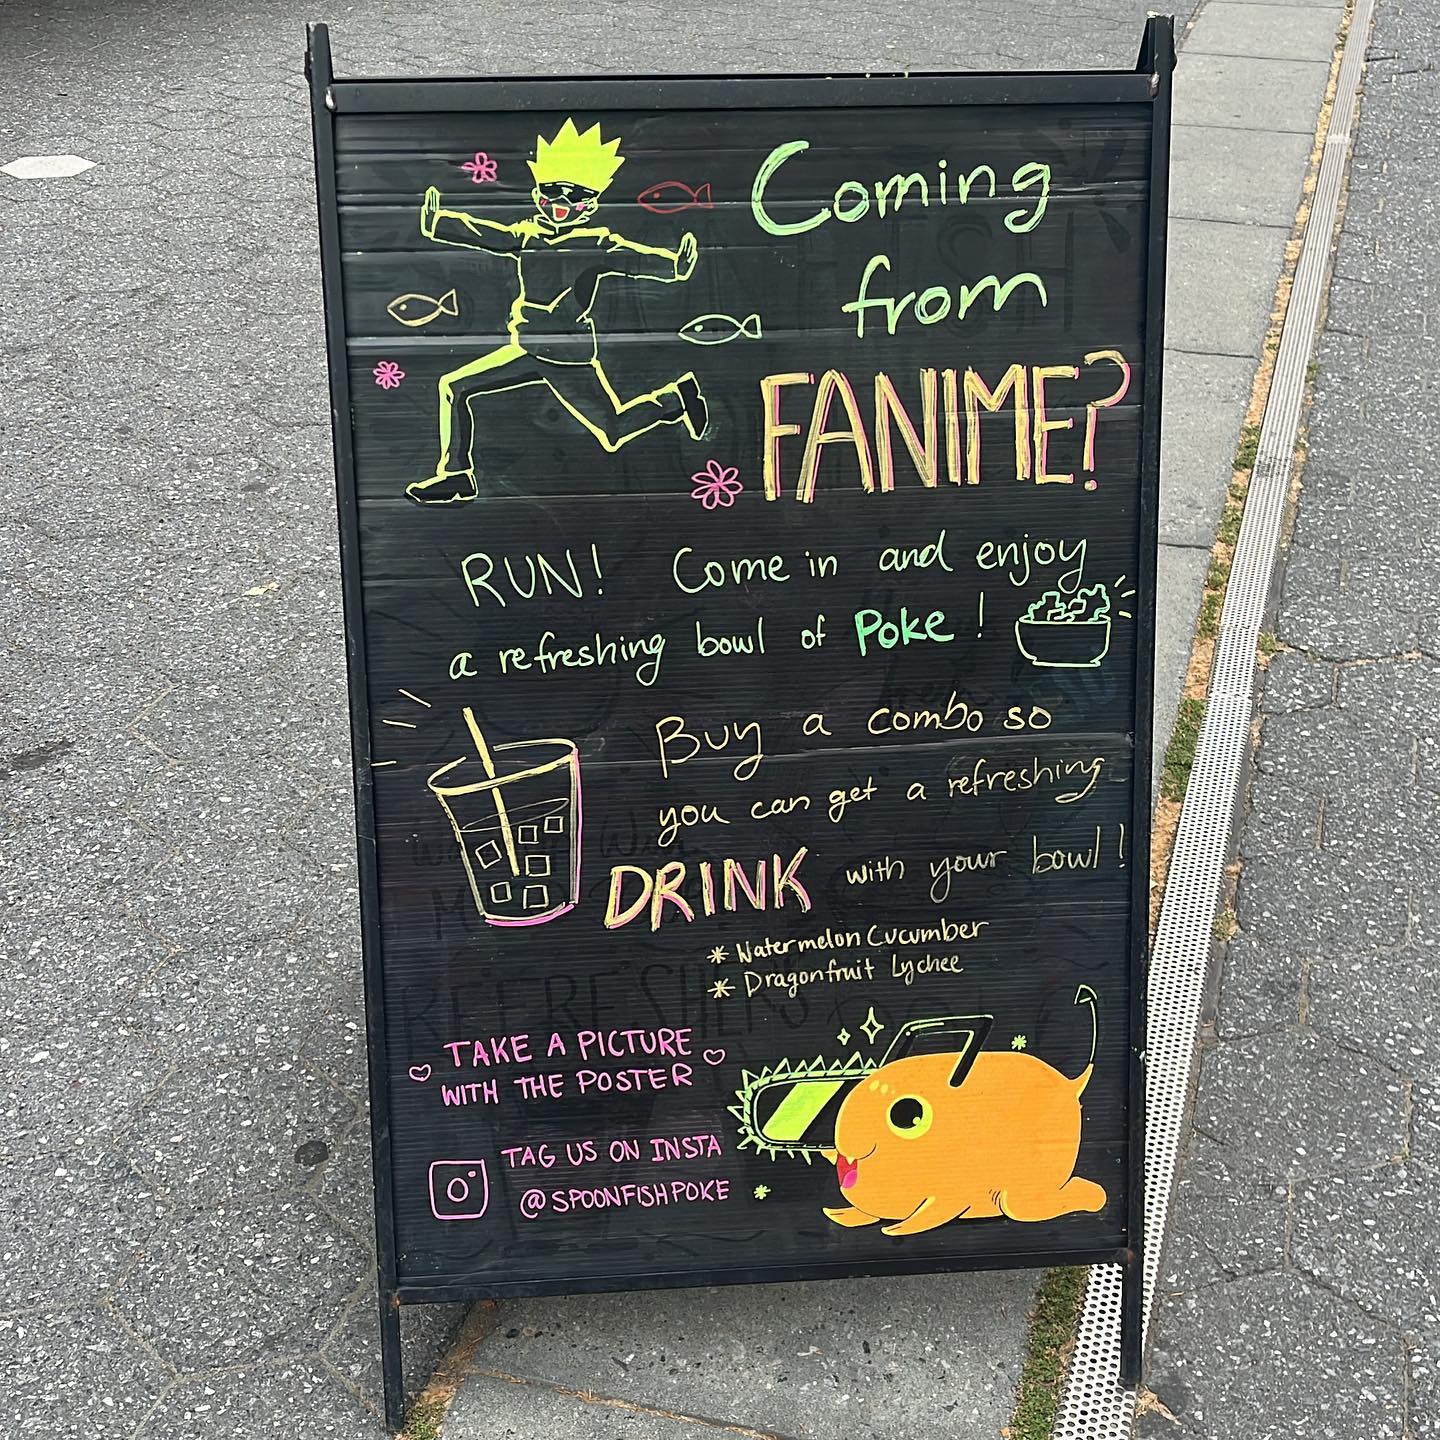 Coming
from
FANIME?
RUN! Come in and enjoy
a refreshing bowl of Poke!
Buy a combo so
you can get a refreshing
DRINK with your bowl!
* Watermelon Cucumber
* Dragonfruit Lychee
TAKE A PICTURE
WITH THE POSTER
TAG US ON INSTA
@SPOONFISHPOKE